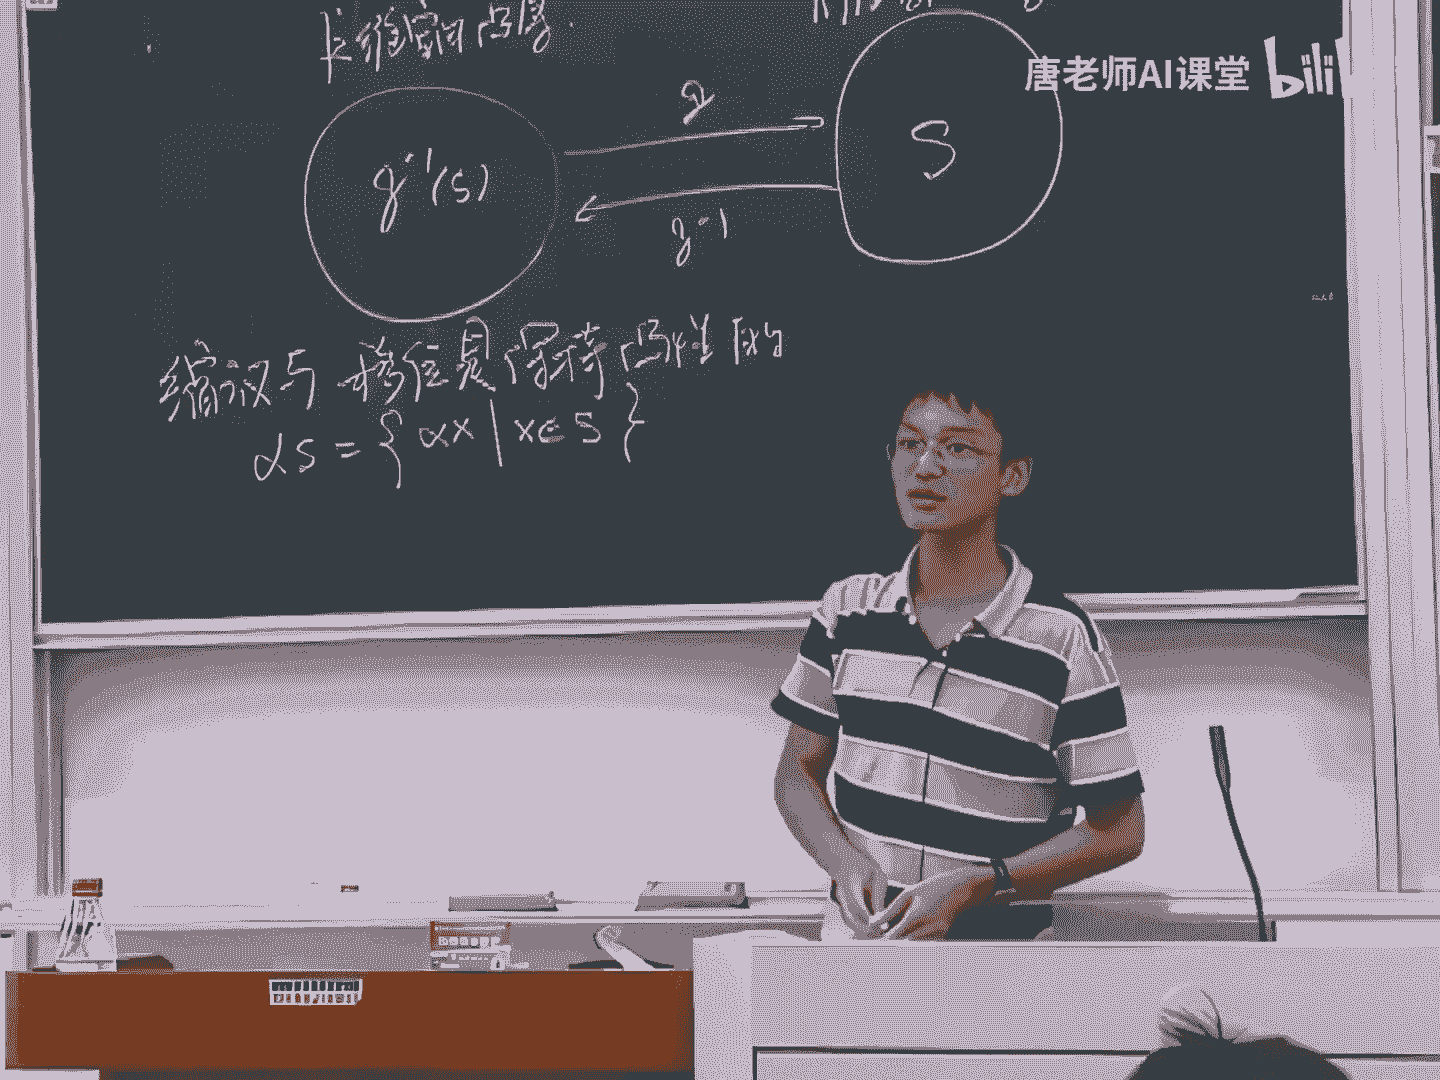 维空间凸集.
唐老师AI课堂 bili
g
g⁻¹(S)
S
g⁻¹
缩放与移位是保持凸性的
αS = {αx | x∈S}